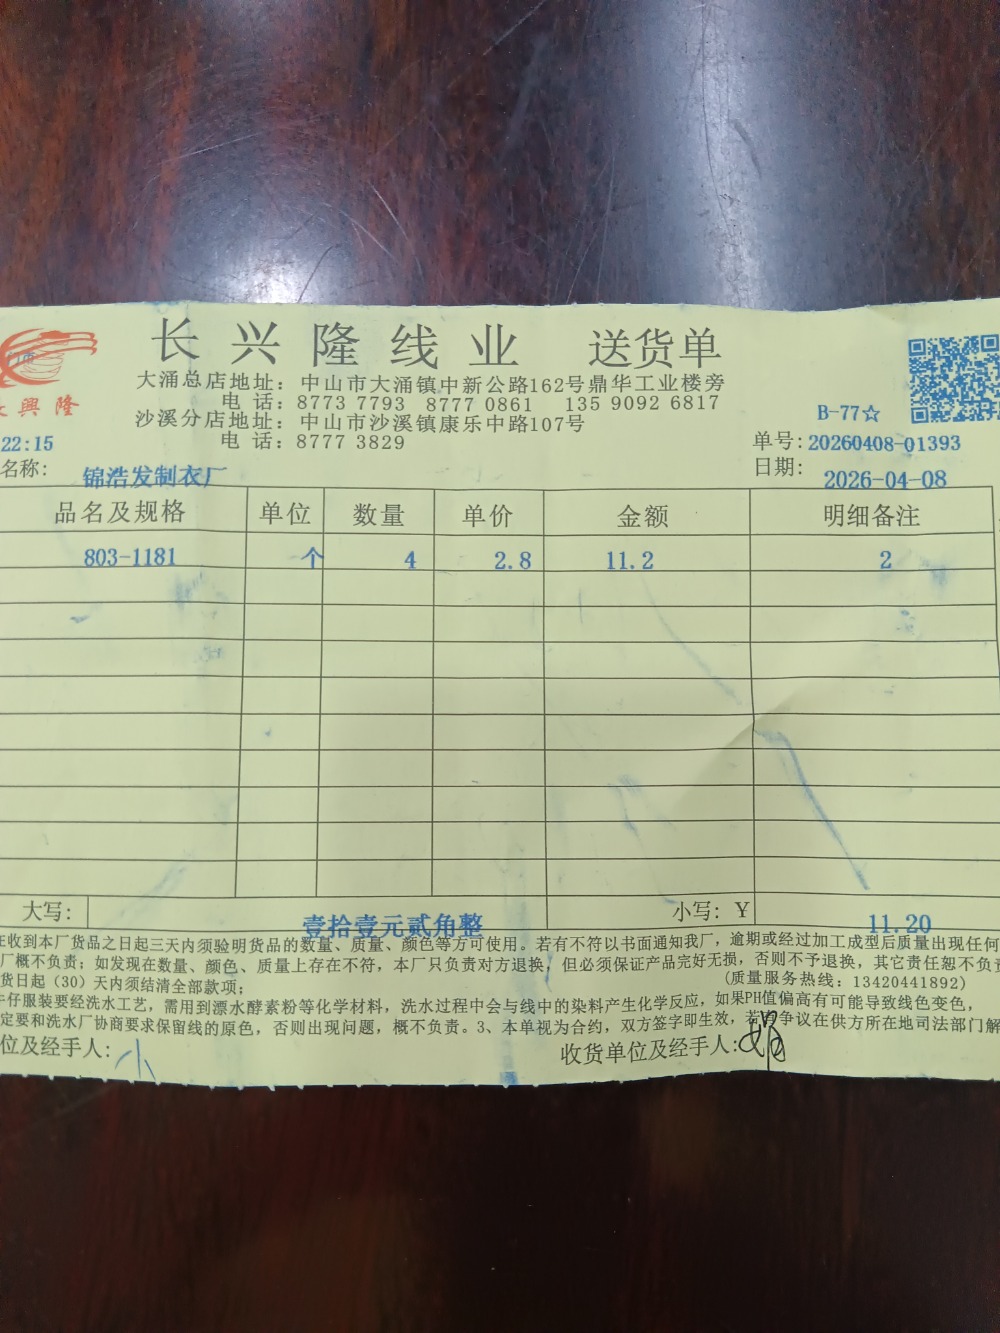 長興隆
长兴隆线业 送货单
大涌总店地址：中山市大涌镇中新公路162号鼎华工业楼旁
电 话：8773 7793 8777 0861 135 9092 6817
沙溪分店地址：中山市沙溪镇康乐中路107号
电 话：8777 3829
B-77☆
22:15
单号：20260408-01393
名称：锦浩发制衣厂
日期：2026-04-08
品名及规格 单位 数量 单价 金额 明细备注
803-1181 个 4 2.8 11.2 2
大写：壹拾壹元贰角整 小写：Y 11.20
在收到本厂货品之日起三天内须验明货品的数量、质量、颜色等方可使用。若有不符以书面通知我厂，逾期或经过加工成型后质量出现任何
厂概不负责；如发现在数量、颜色、质量上存在不符，本厂只负责对方退换，但必须保证产品完好无损，否则不予退换，其它责任恕不负责
货日起（30）天内须结清全部款项；
（质量服务热线：13420441892）
牛仔服装要经洗水工艺，需用到漂水酵素粉等化学材料，洗水过程中会与线中的染料产生化学反应，如果PH值偏高有可能导致线色变色，
定要和洗水厂协商要求保留线的原色，否则出现问题，概不负责。3、本单视为合约，双方签字即生效，若有争议在供方所在地司法部门解
位及经手人：小
收货单位及经手人：